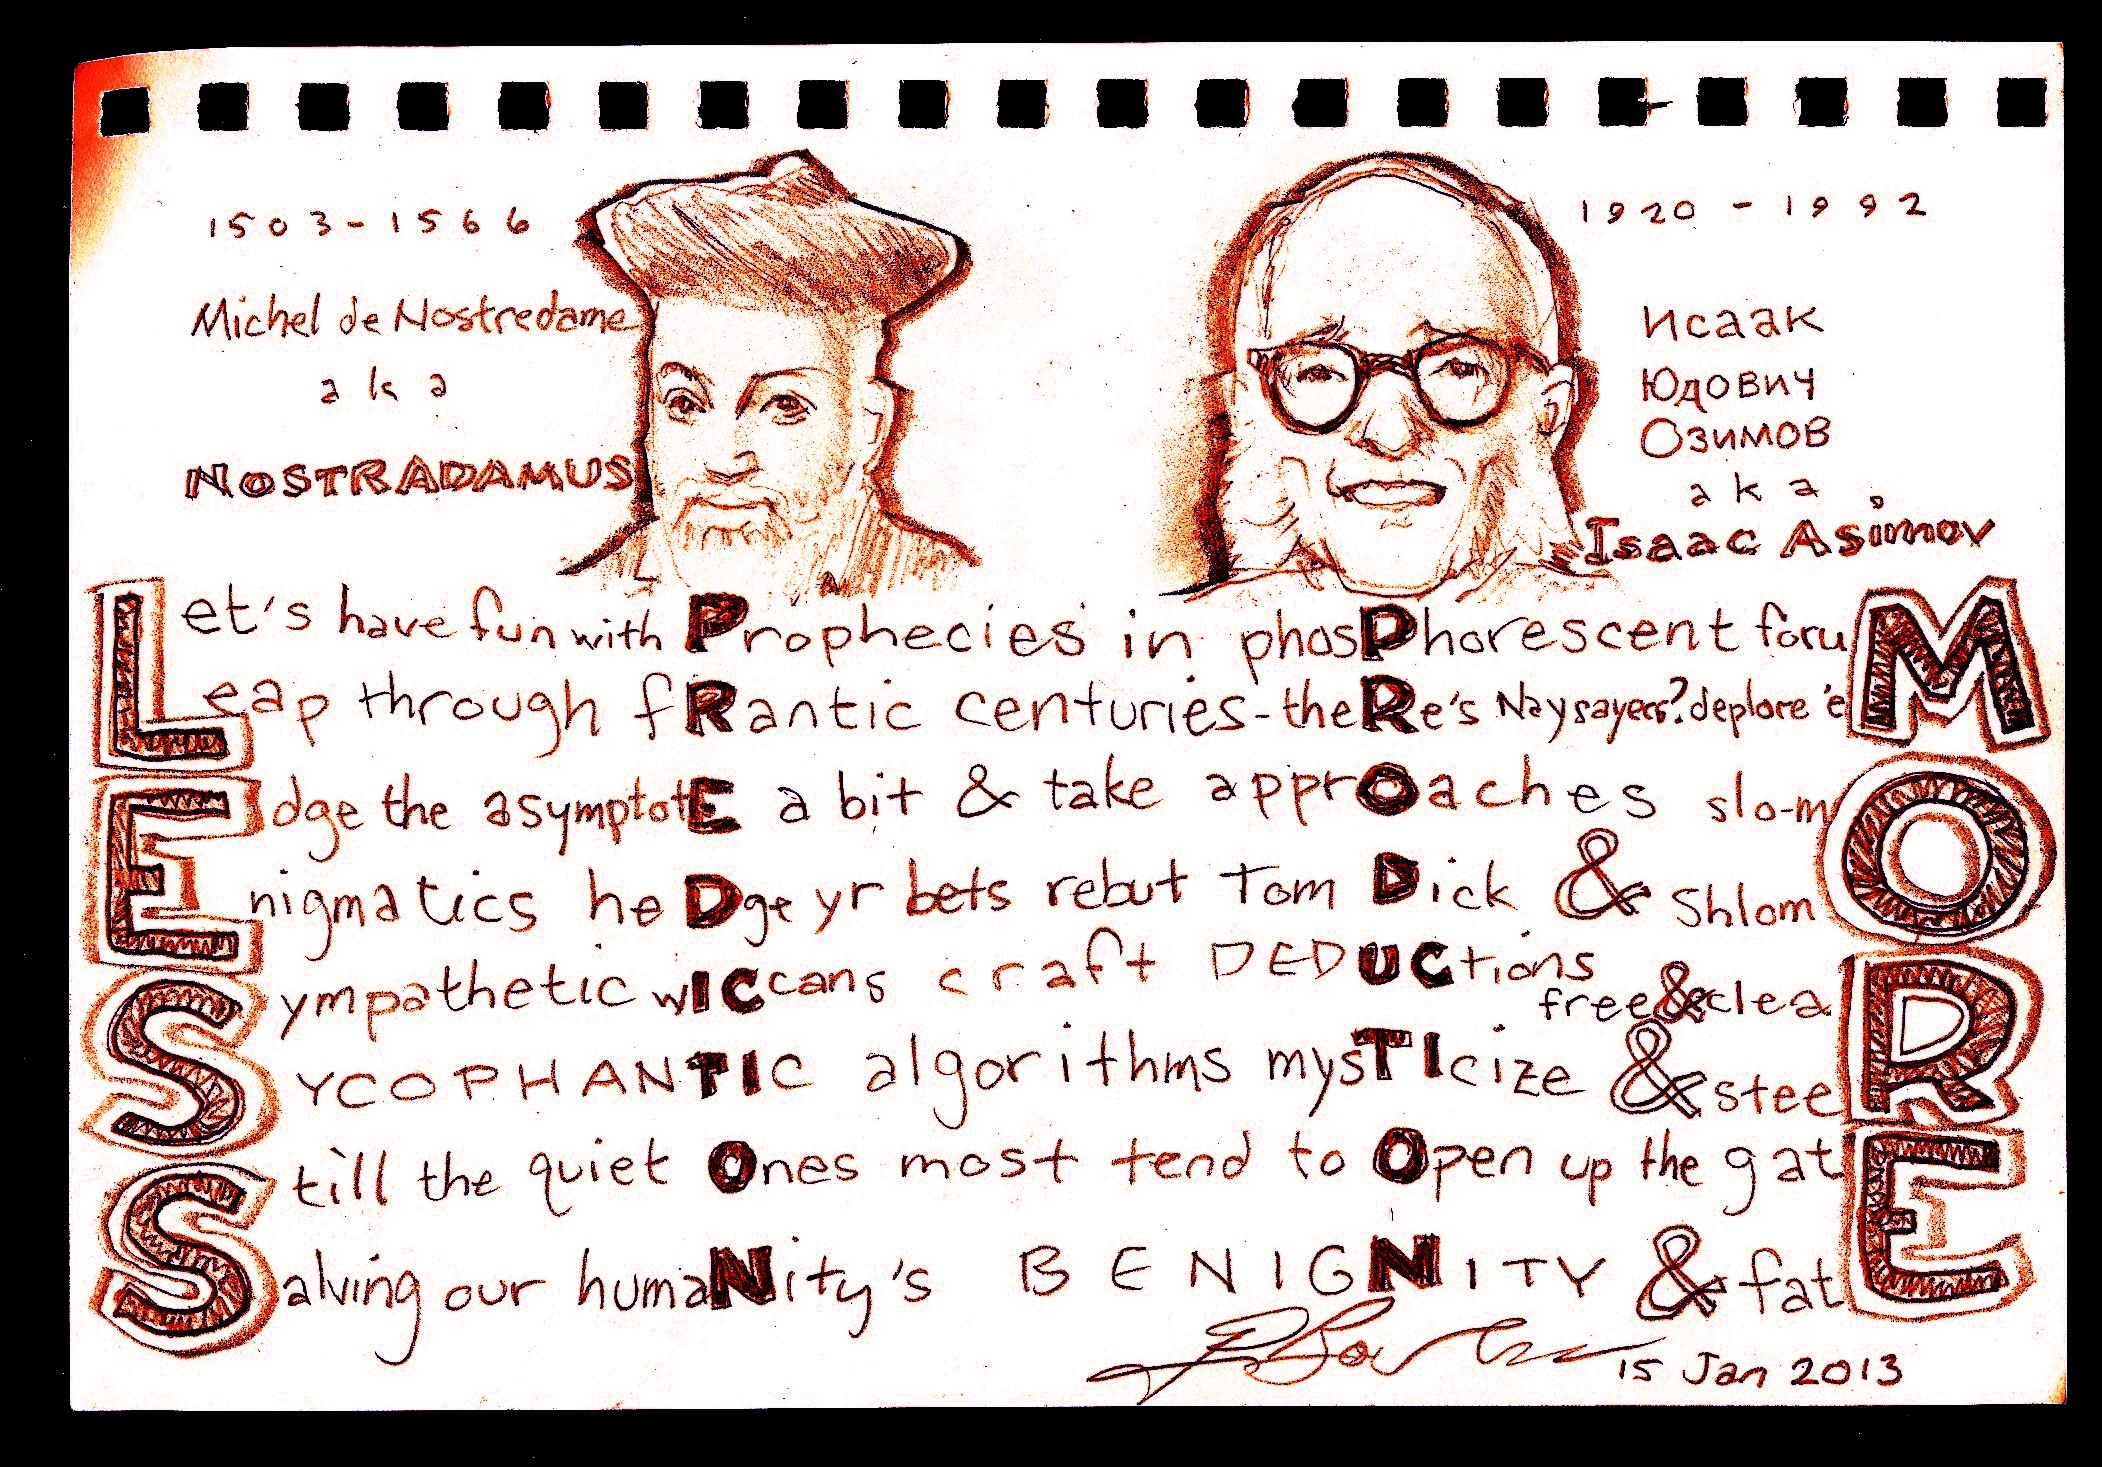 1503-1566
Michel de Nostredame
aka
NOSTRADAMUS
1920-1992
Исаак
Юдович
Озимов
aka
Isaac Asimov
Let's have fun with Prophecies in phosPhorescent foruM
Leap through fRantic centuries-theRe's Naysayers? deplore 'eM
Edge the asymptotE a bit & take apprOaches slo-mO
Enigmatics heDge yr bets rebut Tom Dick & ShlomO
Sympathetic wICcans craft DEDUCtions free & cleaR
SYCOPHANTIC algorithms mysTIcize & steeR
Still the quiet Ones most tend to Open up the gatE
Salving our humaNity's BENIGNITY & fatE
15 Jan 2013